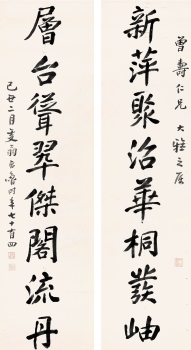 曾壽仁兄 大雅之屬
新萍聚沼華桐發岫
層台聳翠傑閣流丹
己丑二月 時年七十有四